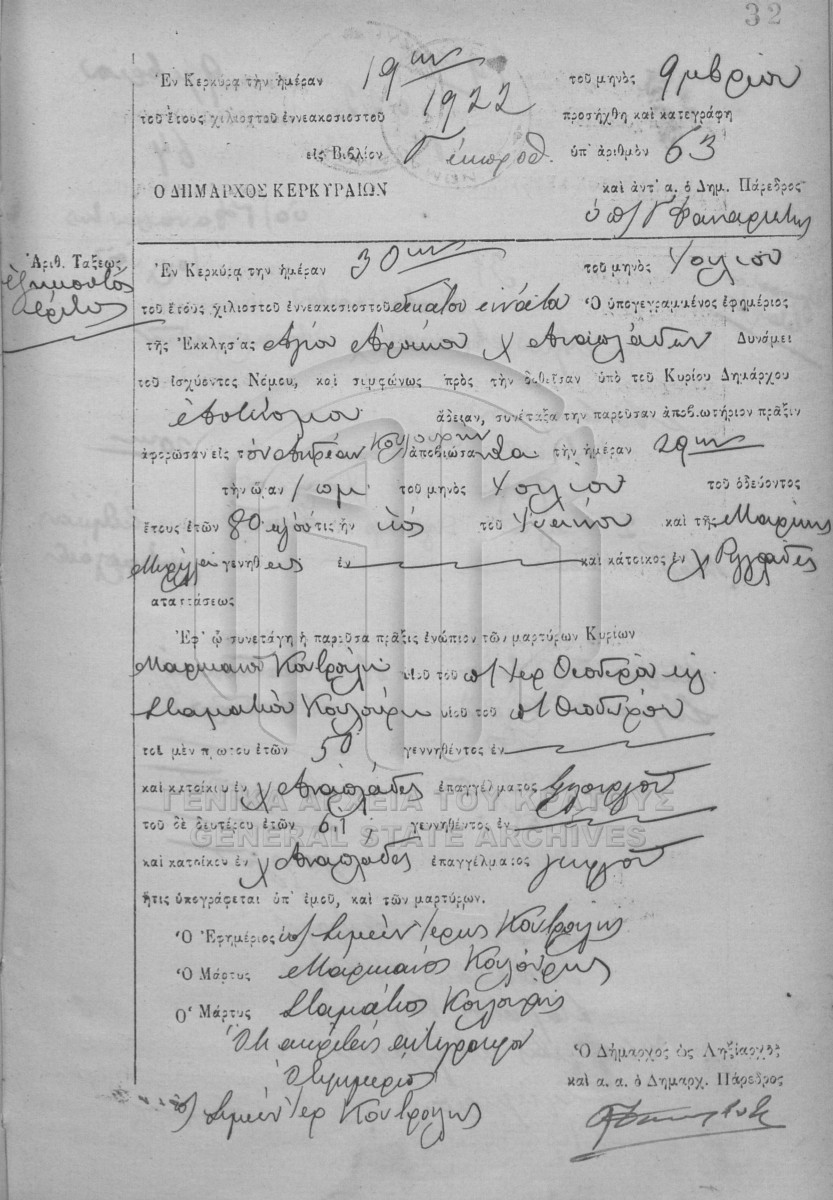 32
Ἐν Κερκύρᾳ τὴν ἡμέραν 19ην τοῦ μηνὸς 9μβρίου
τοῦ ἔτους χιλιοστοῦ ἐννεακοσιοστοῦ 1922 προσήχθη καὶ κατεγράφη
εἰς Βιβλίον Γ' ἐκπροθ. ὑπ' ἀριθμὸν 63
Ο ΔΗΜΑΡΧΟΣ ΚΕΡΚΥΡΑΙΩΝ καὶ ἀντ' α. ὁ Δημ. Πάρεδρος
Ἀριθ. Τάξεως
ἑξηκοστὸς
τρίτος
Ἐν Κερκύρᾳ τὴν ἡμέραν 30ην τοῦ μηνὸς Ἰουλίου
τοῦ ἔτους χιλιοστοῦ ἐννεακοσιοστοῦ Ὁ ὑπογεγραμμένος ἐφημέριος
τῆς Ἐκκλησίας Ἁγίου χ Ἀναπλάδων Δυνάμει
τοῦ ἰσχύοντος Νόμου, καὶ συμφώνως πρὸς τὴν δοθεῖσαν ὑπὸ τοῦ Κυρίου Δημάρχου
ἄδειαν, συνέταξα τὴν παροῦσαν ἀποβιωτήριον πρᾶξιν
ἀφορῶσαν εἰς τὸν Ἀνδρέαν Κουλούρην ἀποβιώσαντα τὴν ἡμέραν 29ην
τὴν ὥραν 1 πμ τοῦ μηνὸς Ἰουλίου τοῦ ὁδεύοντος
ἔτους ἐτῶν 80 ὅστις ἦν υἱός τοῦ καὶ τῆς Μαρίνης
γενηθεὶς ἐν καὶ κάτοικος ἐν χ
καταστάσεως
Ἐφ' ᾧ συνετάγη ἡ παροῦσα πρᾶξις ἐνώπιον τῶν μαρτύρων Κυρίων
Μαρκιανοῦ υἱοῦ τοῦ π/ Ἱερ Θεοδώρου
Σταματίου Κουλούρη υἱοῦ τοῦ π/ Θεοδώρου
τοῦ μὲν πρώτου ἐτῶν 50 γεννηθέντος ἐν
καὶ κατοίκου ἐν χ Ἀναπλάδες ἐπαγγέλματος γεωργοῦ
τοῦ δὲ δευτέρου ἐτῶν 61 γεννηθέντος ἐν
καὶ κατοίκου ἐν χ Ἀναπλάδες ἐπαγγέλματος γεωργοῦ
ἥτις ὑπογράφεται ὑπ' ἐμοῦ, καὶ τῶν μαρτύρων.
Ὁ Ἐφημέριος Συμεὼν Ἱερεὺς Κοντρούλης
Ὁ Μάρτυς Μαρκιανὸς Κουλούρης
Ὁ Μάρτυς Σταμάτιος Κουλούρης
Ὅτι ἀκριβὲς ἀντίγραφον
Ὁ Ἐφημέριος
Συμεὼν Ἱερ Κοντρούλης
Ὁ Δήμαρχος ὡς Ληξίαρχος
καὶ α. α. ὁ Δημαρχ. Πάρεδρος
ΓΕΝΙΚΑ ΑΡΧΕΙΑ ΤΟΥ ΚΡΑΤΟΥΣ
GENERAL STATE ARCHIVES